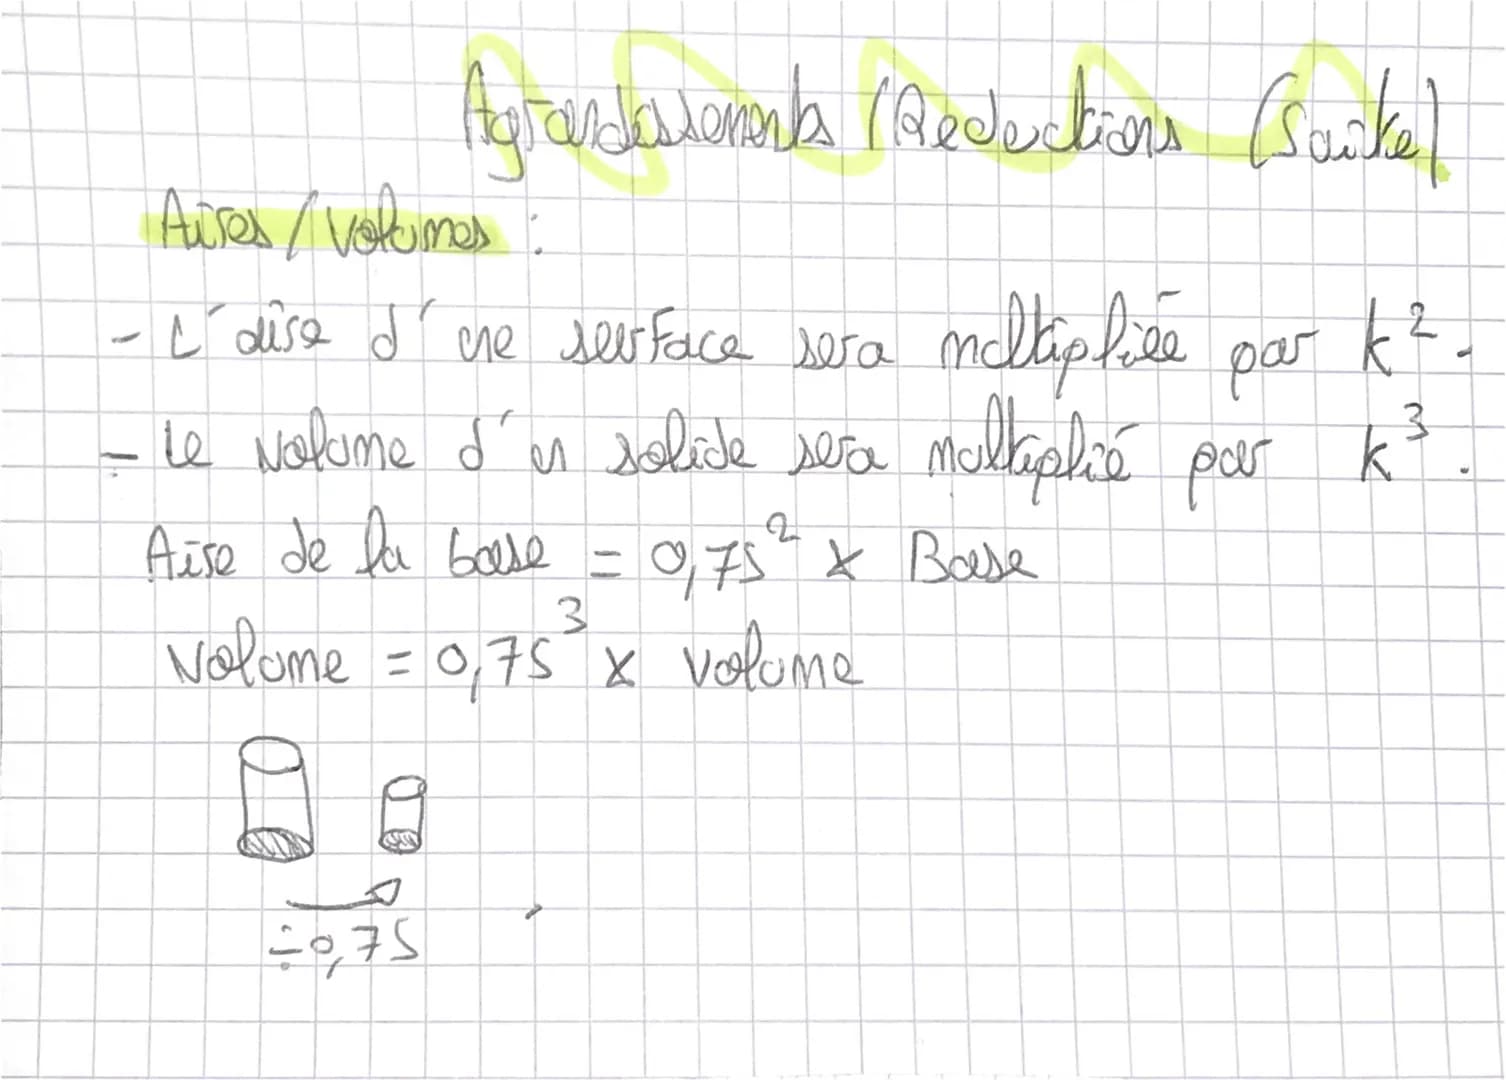 Agrandissements / Réductions (Suite)
Aires / Volumes :
- L'aire d'une surface sera multipliée par k².
- Le volume d'un solide sera multiplié par k³.
Aire de la base = 0,75² × Base
Volume = 0,75³ × volume
÷0,75